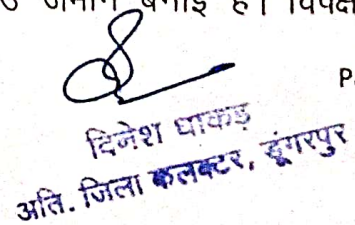 जमीन बनाई है। विपक्ष
P
दिनेश धाकड़
अति. जिला कलक्टर, डूंगरपुर